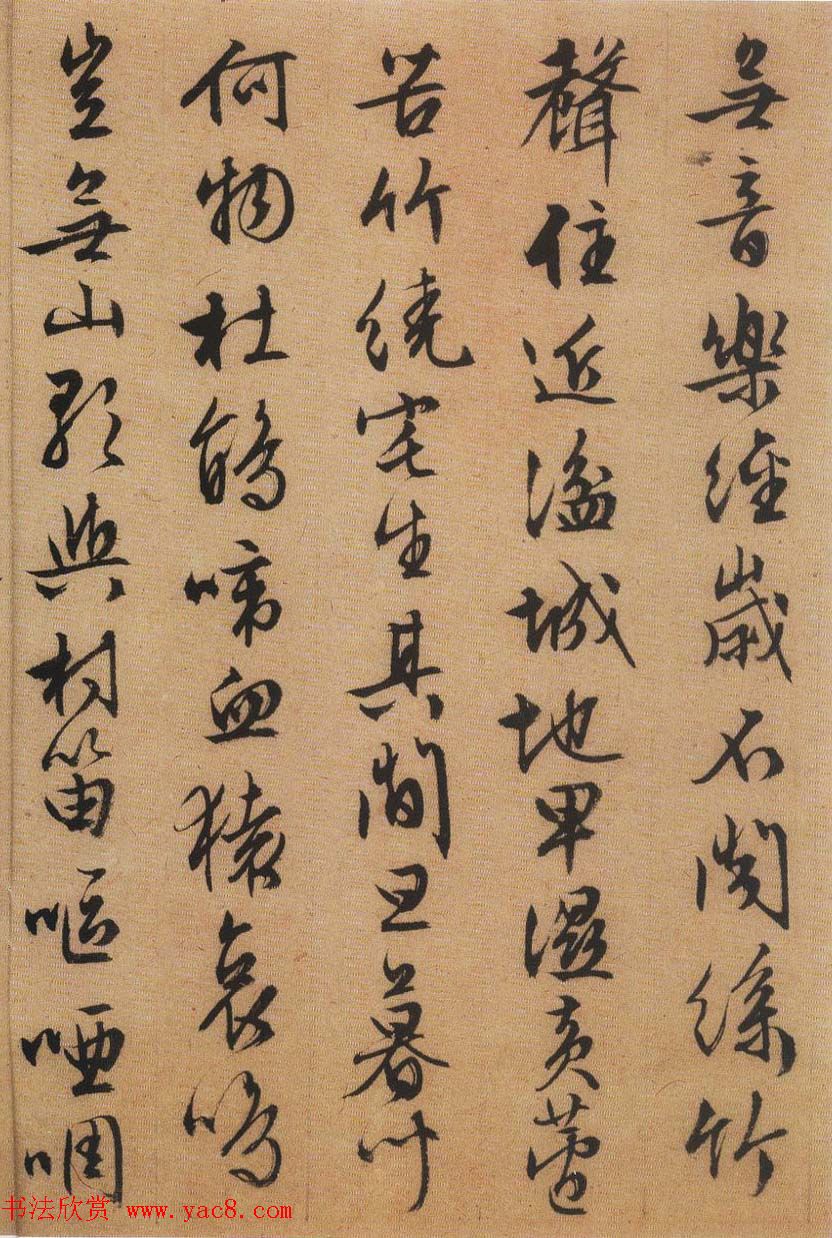 無音樂經歲不聞絲竹
聲住近湓城地卑濕黃蘆
苦竹繞宅生其間旦暮聞
何物杜鵑啼血猿哀鳴
豈無山歌與村笛嘔啞啁
书法欣赏 www.yac8.com